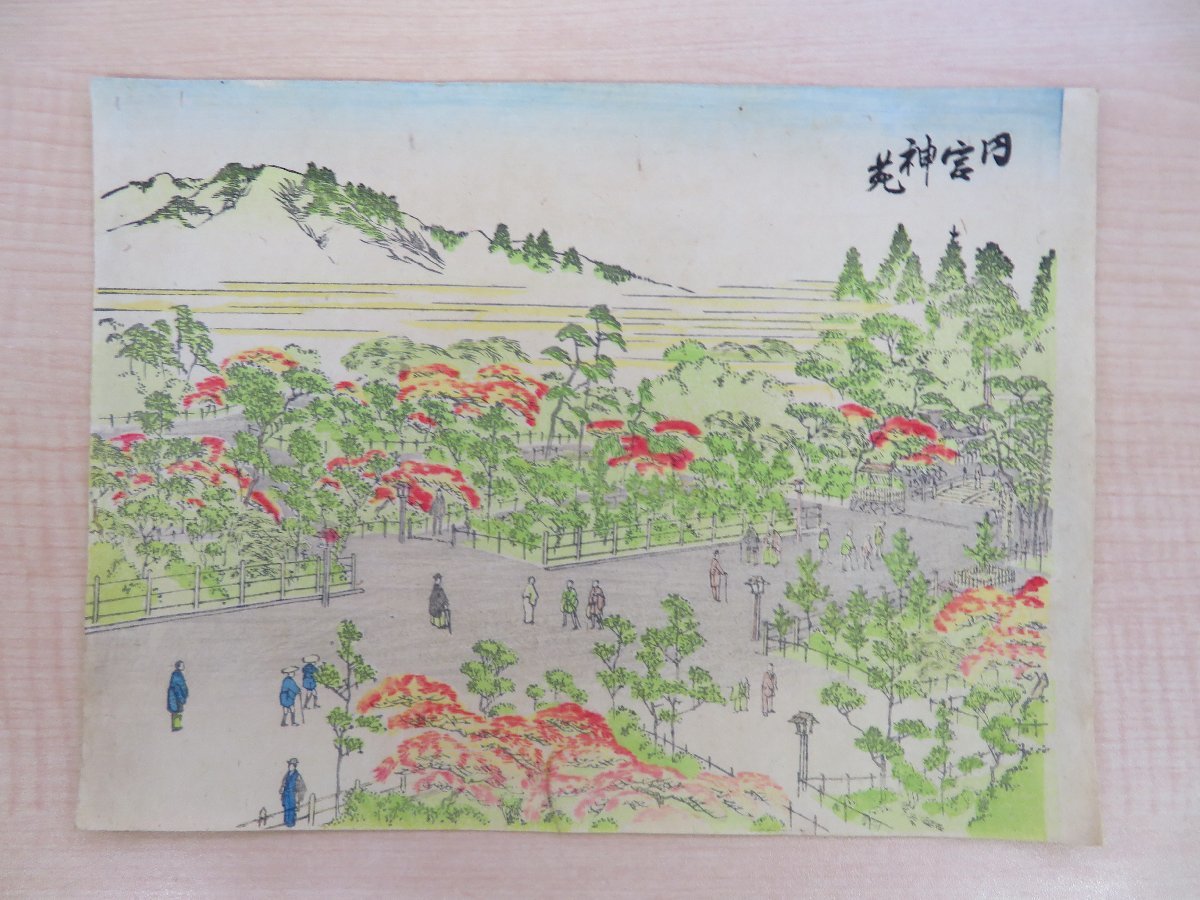 内宮神苑